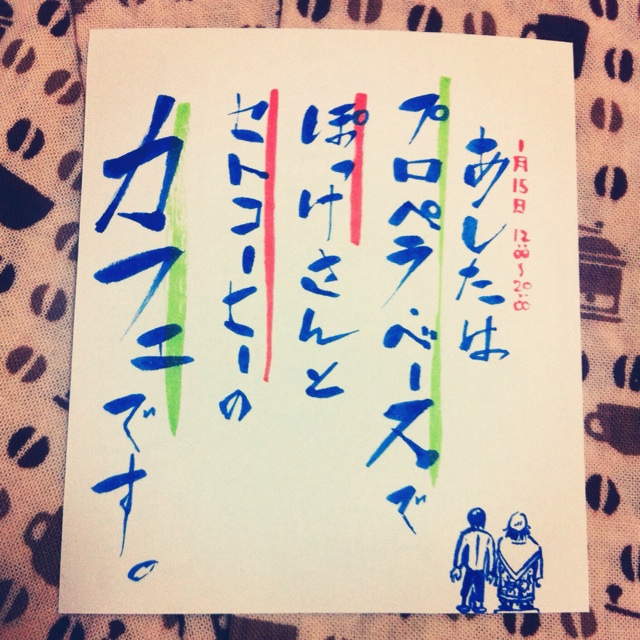 1月15日 12:00〜20:00
あしたは
プロペラ・ベーズで
ぽっけさんと
セトコーヒーの
カフェです。